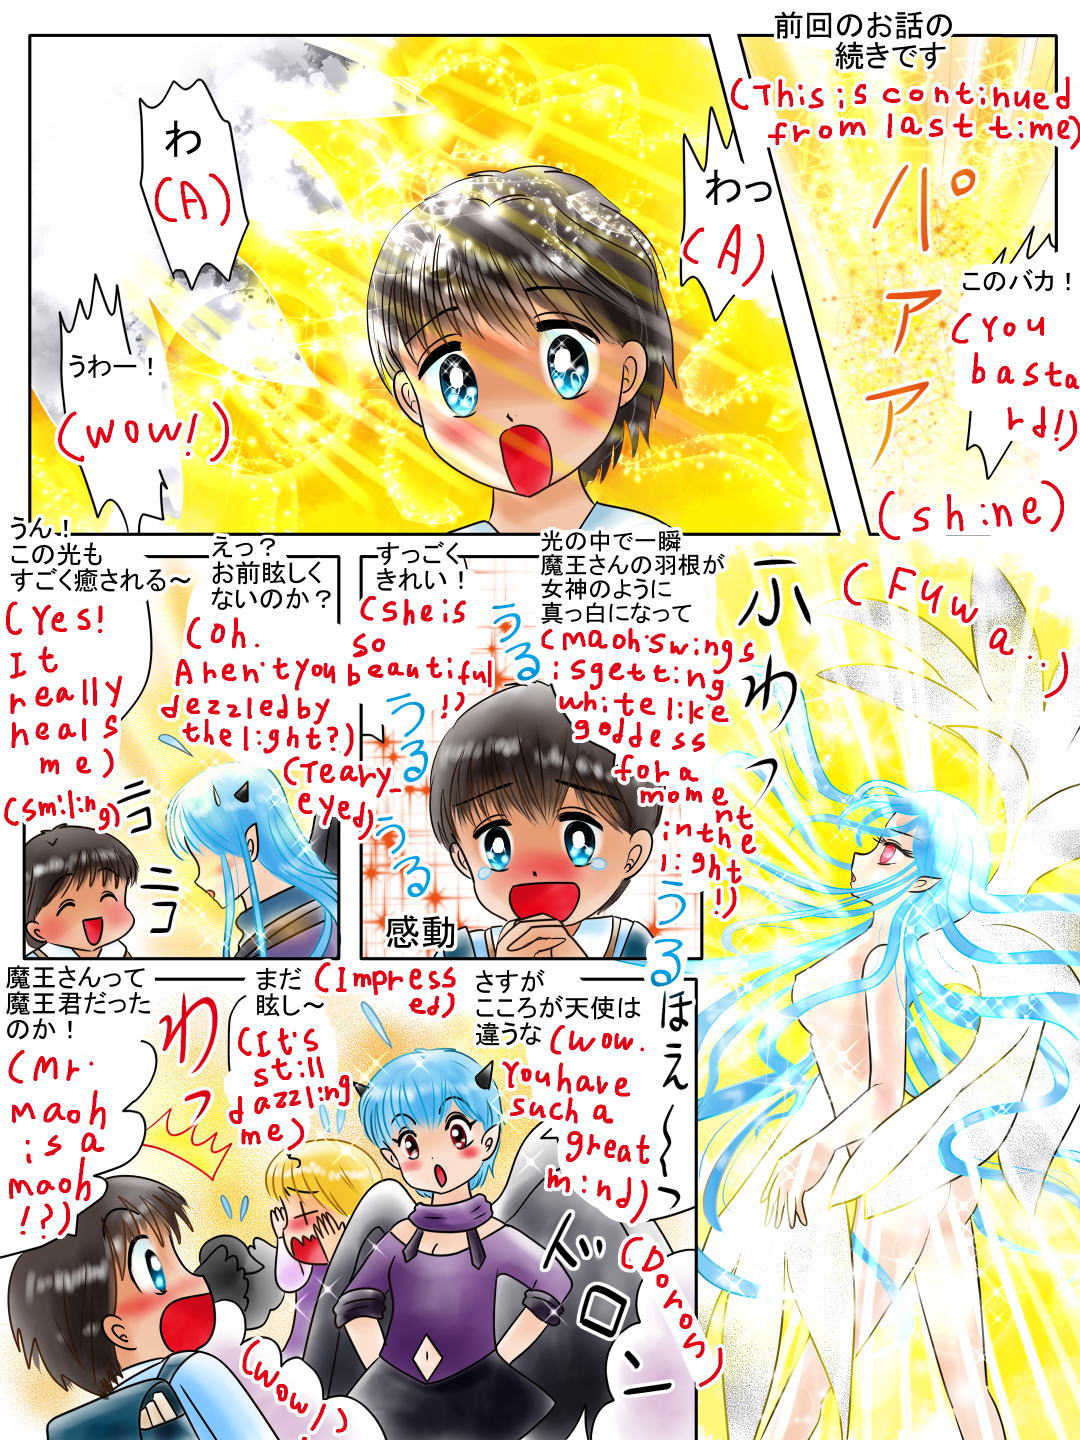 前回のお話の
続きです
(This is continued
from last time)
パアア
このバカ！
(You
basta
rd!)
(shine)
わっ
(A)
わ
(A)
うわー！
(wow!)
ふわっ
(Fuwa..)
光の中で一瞬
魔王さんの羽根が
女神のように
真っ白になって
(maoh's wings
is getting
white like
goddess
for a
moment
in the
light!)
すっごく
きれい！
(She is
so
beautiful
!)
うるうるうる
うる
(Teary_
eyed)
感動
(Impress
ed)
えっ？
お前眩しく
ないのか？
(Oh.
Aren't you
dezzled by
the light?)
うん！
この光も
すごく癒される～
(Yes!
It
really
heals
me)
ニコ
ニコ
(smiling)
ほえ～っ
さすが
こころが天使は
違うな
(wow.
You have
such a
great
mind)
まだ
眩し～
(It's
still
dazzling
me)
ドロン
(Doron)
わっ
魔王さんって
魔王君だった
のか！
(Mr.
maoh
is a
maoh
!?)
(wow!)